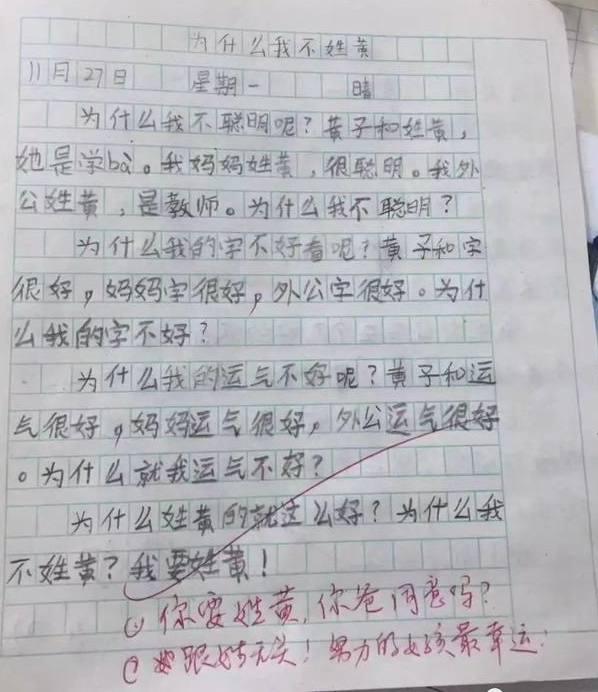 为什么我不姓黄
11月27日 星期一 晴
为什么我不聪明呢?黄子和姓黄,
她是学bà。我妈妈姓黄,很聪明。我外
公姓黄,是教师。为什么我不聪明?
为什么我的字不好看呢?黄子和字
很好,妈妈字很好,外公字很好。为什
么我的字不好?
为什么我的运气不好呢?黄子和运
气很好,妈妈运气很好,外公运气很好
。为什么就我运气不好?
为什么姓黄的就这么好?为什么我
不姓黄?我要姓黄!
你要姓黄,你爸同意吗?
跟姓无关!努力的女孩最幸运!